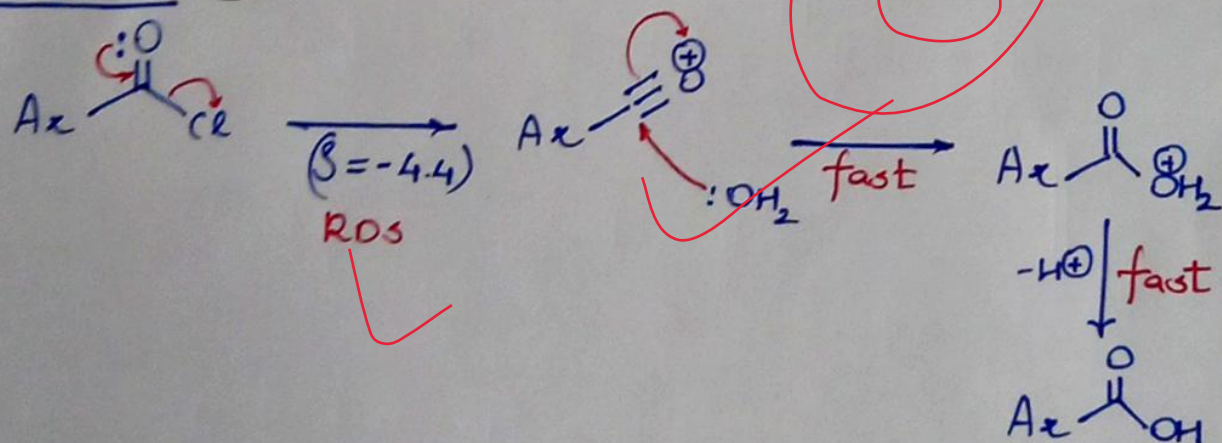 :O
Ar Cl
(ρ=-4.4)
RDS
Ar O ⊕
:OH₂
fast
O
Ar ⊕
OH₂
-H⊕ fast
O
Ar OH